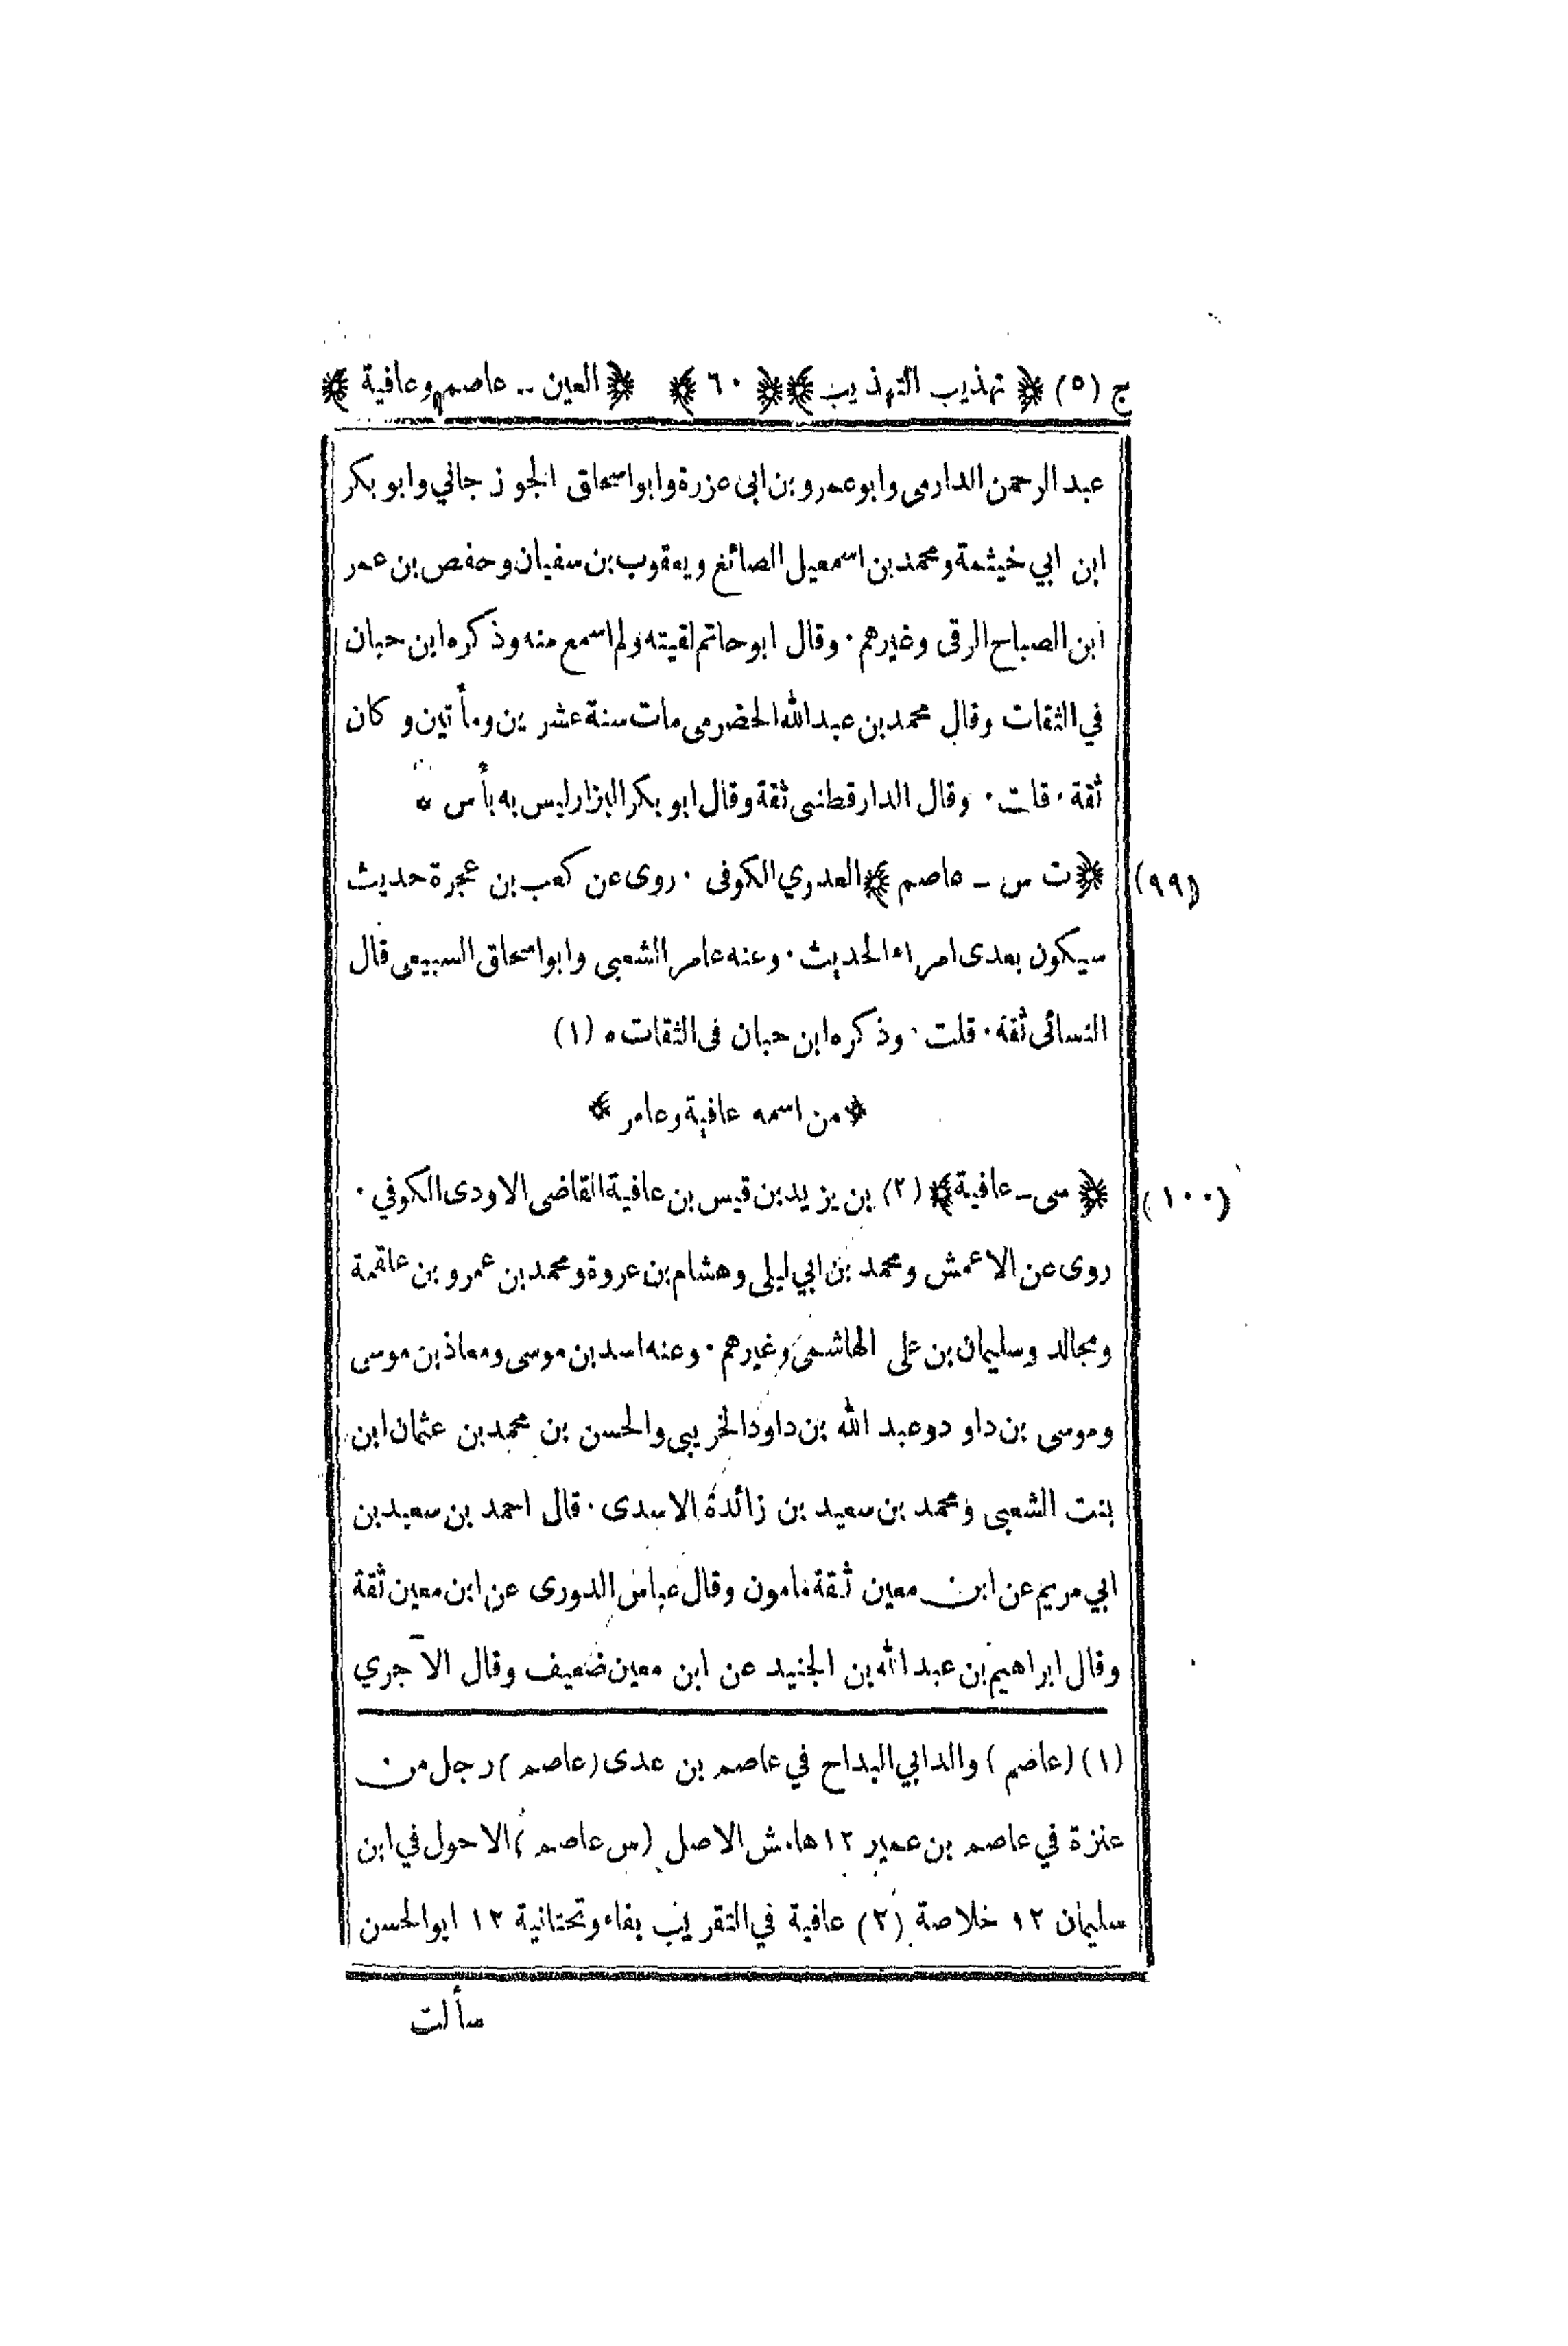 ج (٥) ﴿ تهذيب التهذيب ﴾ ﴿ ٦٠ ﴾ ﴿ العين - عاصم وعافية ﴾
عبد الرحمن الدارمى وابو عمرو بن ابى عزرة وابو اسحاق الجوزجاني وابو بكر
ابن ابي خيثمة ومحمد بن اسمعيل الصائغ ويعقوب بن سفيان وحفص بن عمر
ابن الصباح الرقى وغيرهم · وقال ابو حاتم لقيته ولم اسمع منه وذكره ابن حبان
في الثقات وقال محمد بن عبد الله الحضرمى مات سنة عشرين ومأتين وكان
ثقة · قلت · وقال الدارقطنى ثقة وقال ابو بكر البزار ليس به بأس *
(٩٩) ﴿ ت س - عاصم ﴾ العدوي الكوفى · روى عن كعب بن عجرة حديث
سيكون بعدى امراء الحديث · وعنه عامر الشعبى وابو اسحاق السبيعى قال
النسائى ثقة · قلت · وذكره ابن حبان فى الثقات * (١)
﴿ من اسمه عافية وعامر ﴾
(١٠٠) ﴿ سى - عافية ﴾ (٢) بن يزيد بن قيس بن عافية القاضى الاودى الكوفي ·
روى عن الاعمش ومحمد بن ابي ليلى وهشام بن عروة ومحمد بن عمرو بن علقمة
ومجالد وسليمان بن على الهاشمى وغيرهم · وعنه اسد بن موسى ومعاذ بن موسى
وموسى بن داود وعبد الله بن داود الخريبى والحسن بن محمد بن عثمان ابن
بنت الشعبى ومحمد بن سعيد بن زائدة الاسدى · قال احمد بن سعيد بن
ابي مريم عن ابن معين ثقة مامون وقال عباس الدورى عن ابن معين ثقة
وقال ابراهيم بن عبد الله بن الجنيد عن ابن معين ضعيف وقال الآجري
(١) (عاصم) والد ابي البداح في عاصم بن عدى (عاصم) رجل من
عنزة في عاصم بن عمير ١٢ هامش الاصل (س عاصم) الاحول في ابن
سليمان ١٢ خلاصة (٢) عافية في التقريب بفاء وتحتانية ١٢ ابو الحسن
سألت